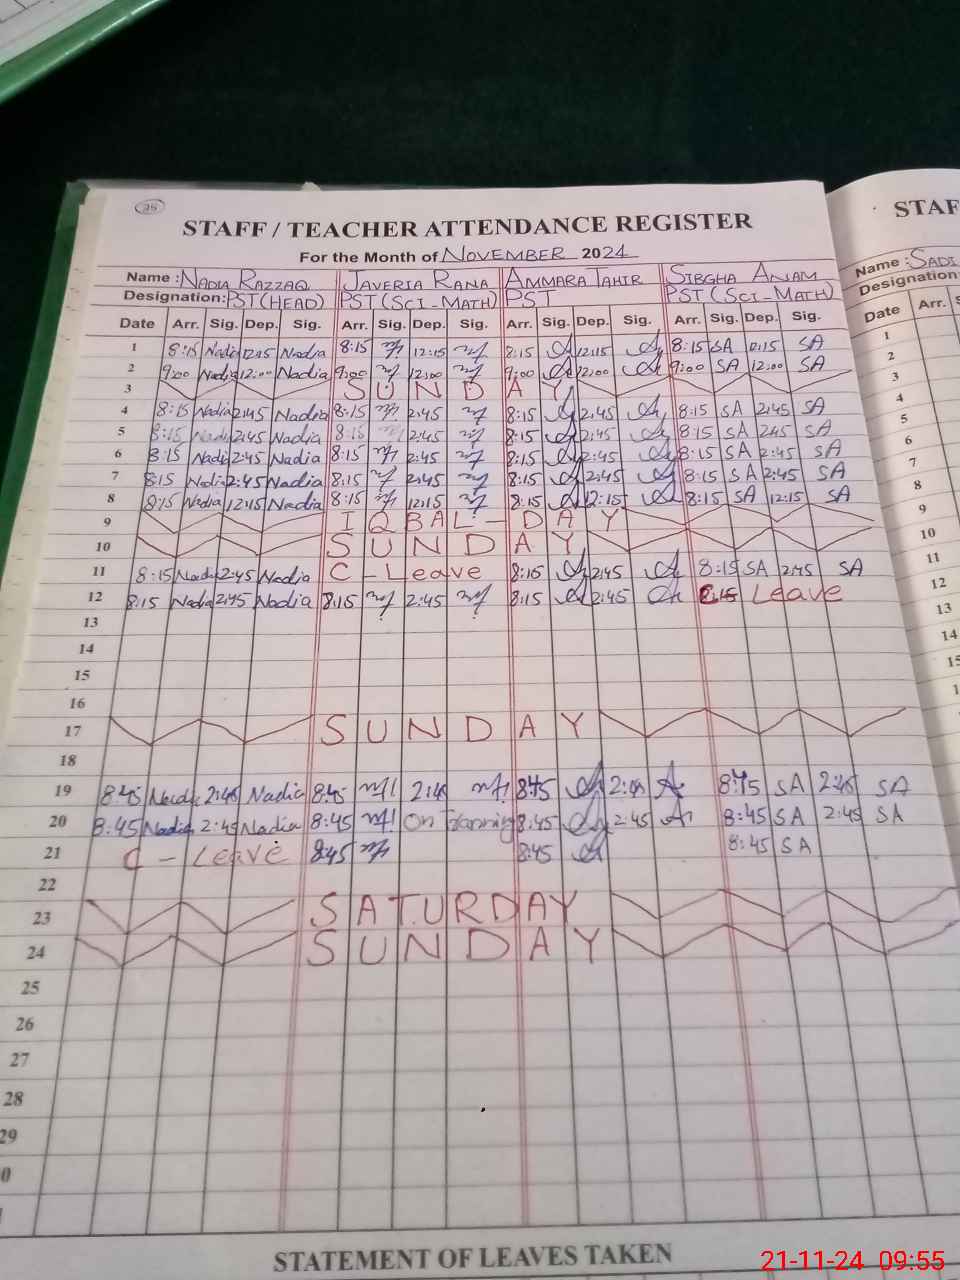 25
STAFF / TEACHER ATTENDANCE REGISTER
STAF
For the Month of NOVEMBER 2024
Name : NADIA RAZZAQ JAVERIA RANA AMMARA TAHIR SIBGHA ANAM
Name : SADI
Designation: PST (HEAD) PST (SCI-MATH) PST PST (SCI-MATH)
Designation:
Date Arr. Sig. Dep. Sig. Arr. Sig. Dep. Sig. Arr. Sig. Dep. Sig. Arr. Sig. Dep. Sig.
Date Arr. S
1 8:15 Nadia 12:15 Nadia 8:15 12:15 8:15 12:15 8:15 SA 12:15 SA
1
2 9:00 Nadia 12:00 Nadia 9:00 12:00 9:00 12:00 9:00 SA 12:00 SA
2
3 SUNDAY
3
4 8:15 Nadia 2:45 Nadia 8:15 2:45 8:15 2:45 8:15 SA 2:45 SA
4
5 8:15 Nadia 2:45 Nadia 8:15 2:45 8:15 2:45 8:15 SA 2:45 SA
5
6 8:15 Nadia 2:45 Nadia 8:15 2:45 8:15 2:45 8:15 SA 2:45 SA
6
7 8:15 Nadia 2:45 Nadia 8:15 2:45 8:15 2:45 8:15 SA 2:45 SA
7
8 8:15 Nadia 12:15 Nadia 8:15 12:15 8:15 12:15 8:15 SA 12:15 SA
8
9 IQBAL-DAY
9
10 SUNDAY
10
11 8:15 Nadia 2:45 Nadia C-Leave 8:15 2:45 8:15 SA 2:45 SA
11
12 8:15 Nadia 2:45 Nadia 8:15 2:45 8:15 2:45 Leave
12
13
13
14
14
15
15
16
17 SUNDAY
18
19 8:45 Nadia 2:45 Nadia 8:45 2:45 8:45 2:45 8:45 SA 2:45 SA
20 8:45 Nadia 2:45 Nadia 8:45 On 8:45 2:45 8:45 SA 2:45 SA
21 C-Leave 8:45 8:45 8:45 SA
22
23 SATURDAY
24 SUNDAY
25
26
27
28
29
0
STATEMENT OF LEAVES TAKEN
21-11-24 09:55